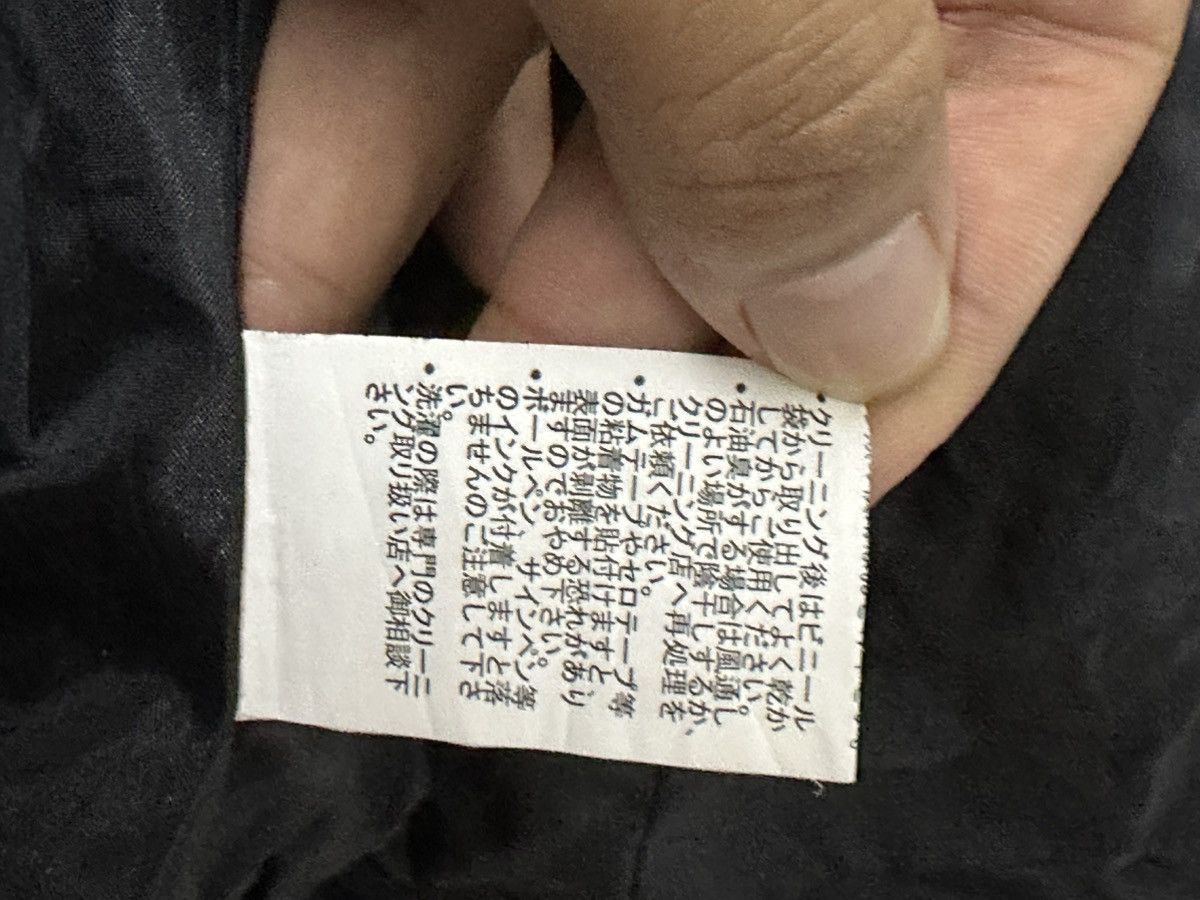 ・クリーニング後はビニール
袋から取り出してよく乾か
してからご使用ください。
・石油臭がする場合は風通し
のよい場所で陰干しするか、
クリーニング店へ再処理を
ご依頼ください。
・ガムテープやセロテープ等
の粘着物を貼付けますと
表面が剥離する恐れがあり
ますのでおやめ下さい。
・ボールペン、サインペン等
のインクが付着しますと落
ちませんのご注意して下さ
い。
・洗濯の際は専門のクリーニ
ング取り扱い店へ御相談下
さい。